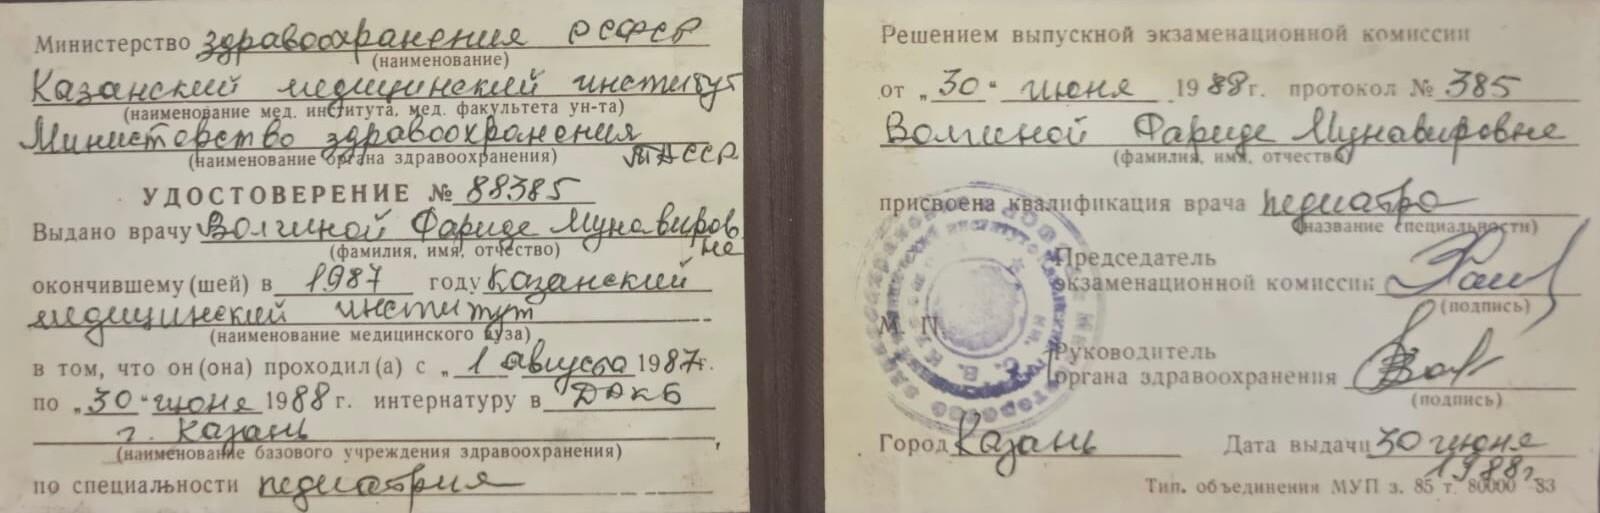 Министерство здравоохранения РСФСР
(наименование)
Казанский медицинский институт
(наименование мед. института, мед. факультета ун-та)
Министерство здравоохранения
(наименование органа здравоохранения) ТАССР
УДОСТОВЕРЕНИЕ № 88385
Выдано врачу Волгиной Фариде Мунавиров
(фамилия, имя, отчество) не
окончившему (шей) в 1987 году Казанский
медицинский институт
(наименование медицинского вуза)
в том, что он (она) проходил(а) с „1 августа 1987г.
по „30" июня 1988 г. интернатуру в ДРКБ
г. Казань,
(наименование базового учреждения здравоохранения)
по специальности педиатрия
Решением выпускной экзаменационной комиссии
от „30" июня 1988г. протокол № 385
Волгиной Фариде Мунавировне
(фамилия, имя, отчество)
присвоена квалификация врача педиатра
(название специальности)
Председатель
экзаменационной комиссии
(подпись)
М. П.
Руководитель
органа здравоохранения
(подпись)
Город Казань Дата выдачи 30 июня
1988г
Тип. объединения МУП з. 85 т. 80000 83